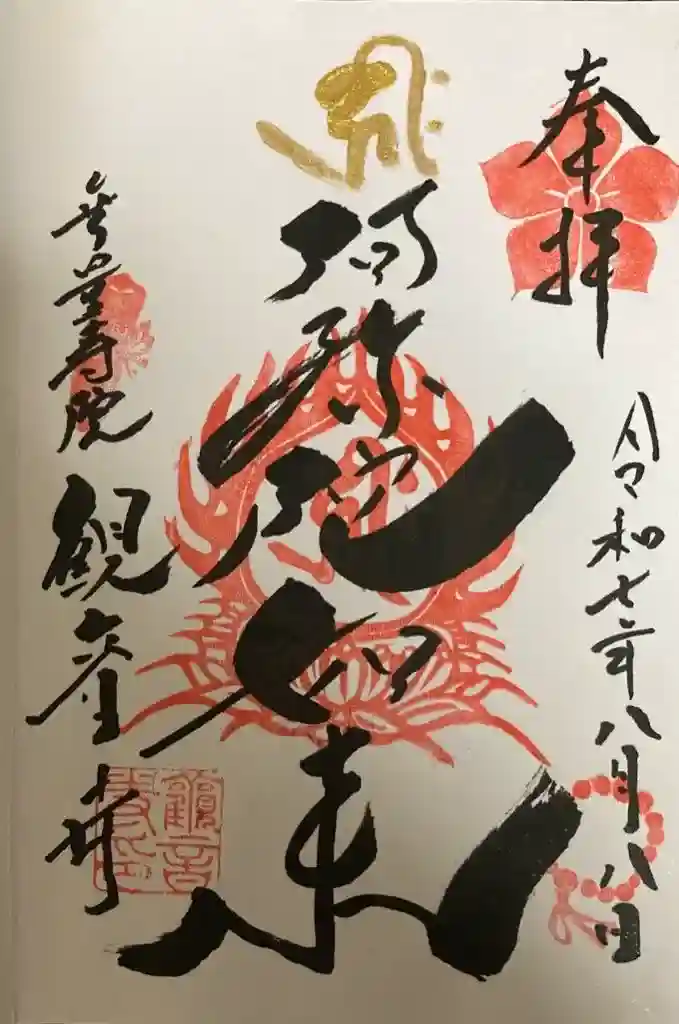 奉拝
令和七年八月八日
阿弥陀如来
無量寿院
観音寺